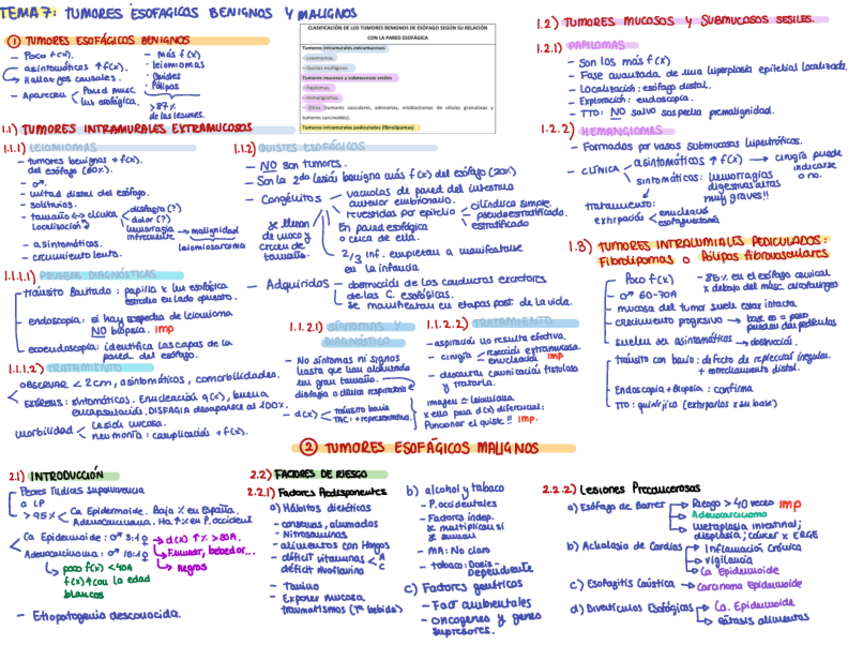 TEMA 7: TUMORES ESOFÁGICOS BENIGNOS Y MALIGNOS
CLASIFICACIÓN DE LOS TUMORES BENIGNOS DE ESÓFAGO SEGÚN SU RELACIÓN
CON LA PARED ESOFÁGICA
Tumores intramurales extramucosos
- Leiomiomas.
- Quistes esofágicos.
Tumores mucosos y submucosos sesiles
- Papilomas.
- Hemangiomas.
- Otros (tumores vasculares, adenomas, mioblastomas de células granulosas y
tumores carcinoides).
Tumores intramurales pediculados (fibrolipomas)
1 TUMORES ESOFÁGICOS BENIGNOS
- Poco f(x).
- asintomáticos ↑f(x).
↳ Hallazgos casuales.
- Aparecen
Pared musc
luz esofágica.
- más f(x)
· leiomiomas
· Quistes
· Pólipos
> 87%
de las lesiones.
1.1) TUMORES INTRAMURALES EXTRAMUCOSOS
1.1.1) LEIOMIOMAS
- tumores benignos + f(x).
del esófago (60%).
- ♂.
- mitad distal del esófago.
- solitarios.
- tamaño ↔ clínica
localización
disfagia (?)
dolor (?)
hemorragia
infrecuente
→ malignidad
leiomiosarcoma
- asintomáticos.
- crecimiento lento.
1.1.1.1) PRUEBAS DIAGNÓSTICAS
- tránsito baritado: papilla x luz esofágica
estrecha en lado opuesto.
- endoscopia: si hay sospecha de leiomioma
NO biopsia. imp
- ecoendoscopia: identifica las capas de la
pared del esófago.
1.1.1.2) TRATAMIENTO
OBSERVAR < 2cm, asintomáticos, comorbilidades.
EXÉRESIS: sintomáticos. Enucleación q(x), buena
encapsulación. DISFAGIA desaparece al 100%.
morbilidad
Lesión mucosa.
neumonía: complicación + f(x).
1.1.2) QUISTES ESOFÁGICOS
- NO son tumores.
- Son la 2da lesión benigna más f(x) del esófago (20%)
- Congénitos
vacuolas de pared del intestino
anterior embrionario.
revestidas por epitelio
cilíndrico simple
pseudoestratificado.
estratificado
En pared esofágica
o cerca de ella.
2/3 inf. empiezan a manifestarse
en la infancia
se llenan
de moco y
crecen de
tamaño.
- Adquiridos
obstrucción de los conductos excretores
de las G. esofágicas.
se manifiestan en etapas post. de la vida.
1.1.2.1) SÍNTOMAS Y
DIAGNÓSTICO
- No síntomas ni signos
hasta que han alcanzado
un gran tamaño.
disfagia o clínica respiratoria
- d(x)
tránsito bario
TAC: + representativa.
1.1.2.2) TRATAMIENTO
- aspiración no resulta efectiva.
- cirugía
resección extramucosa.
enucleación imp
- descartar comunicación fistulosa
y tratarla.
imagen ≃ leiomioma
x ello para d(x) diferencial:
Puncionar el quiste!! imp.
1.2) TUMORES MUCOSOS Y SUBMUCOSOS SESILES.
1.2.1) PAPILOMAS
- Son los más f(x)
- Fase avanzada de una hiperplasia epitelial localizada.
- Localización: esófago distal.
- Exploración: endoscopia.
- TTO: NO salvo sospecha premalignidad.
1.2.2) HEMANGIOMAS.
- Formados por vasos submucosos hipertróficos.
- CLÍNICA
asintomáticos ↑ f(x) → cirugía puede
indicarse
o no.
sintomáticos: hemorragias
digestivas altas
muy graves!!
tratamiento:
extirpación
enucleación
esofaguectomía
1.3) TUMORES INTRALUMIALES PEDICULADOS:
Fibrolipomas o Pólipos fibrovasculares
Poco f(x)
- 85% en el esófago cervical
x debajo del musc. cricofaríngeo
- ♂ 60-70A
- mucosa del tumor suele estar intacta
- crecimiento progresivo → base es + poco
pueden ser pediculados
- suelen ser asintomáticos → obstrucción.
- tránsito con bario: defecto de repleción irregular.
+ estrechamiento distal.
- Endoscopia + Biopsia: confirma
- TTO: quirúrgico (extirparlos x su base)
2 TUMORES ESOFÁGICOS MALIGNOS
2.1) INTRODUCCIÓN
Peores índices supervivencia
a LP
> 95%
Ca Epidermoide. Baja % en España.
Adenocarcinoma. Ha ↑% en P. occident
Ca Epidermoide: ♂ 3:1♀
Adenocarcinoma: ♂ 15:1♀
→ d(x) ↑% > 50A.
↳ Fumador, bebedor...
↳ negros
↳ poco f(x) < 40A
f(x) ↑ con la edad
blancos
- Etiopatogenia desconocida.
2.2) FACTORES DE RIESGO
2.2.1) Factores Predisponentes
a) Hábitos dietéticos
- conservas, ahumados
- Nitrosaminas
- alimentos con hongos
- déficit vitaminas A
C
déficit riboflavina
- Tanino
- Exponer mucosa
traumatismos (Tª bebida)
b) alcohol y tabaco
- P. occidentales
- Factores indep.
se multiplican si
se suman
- MA: No claro
- tabaco: Dosis-
Dependiente
c) Factores genéticos
- Fact ambientales
- oncogenes y genes
supresores.
2.2.2) Lesiones Precancerosas
a) Esófago de Barret
Riesgo > 40 veces imp
Adenocarcinoma
metaplasia intestinal;
displasia; cáncer x ERGE
b) Achalasia de Cardias
Inflamación crónica
vigilancia
Ca Epidermoide
c) Esofagitis Cáustica → Carcinoma Epidermoide
d) Divertículos Esofágicos
Ca. Epidermoide
éstasis alimentos